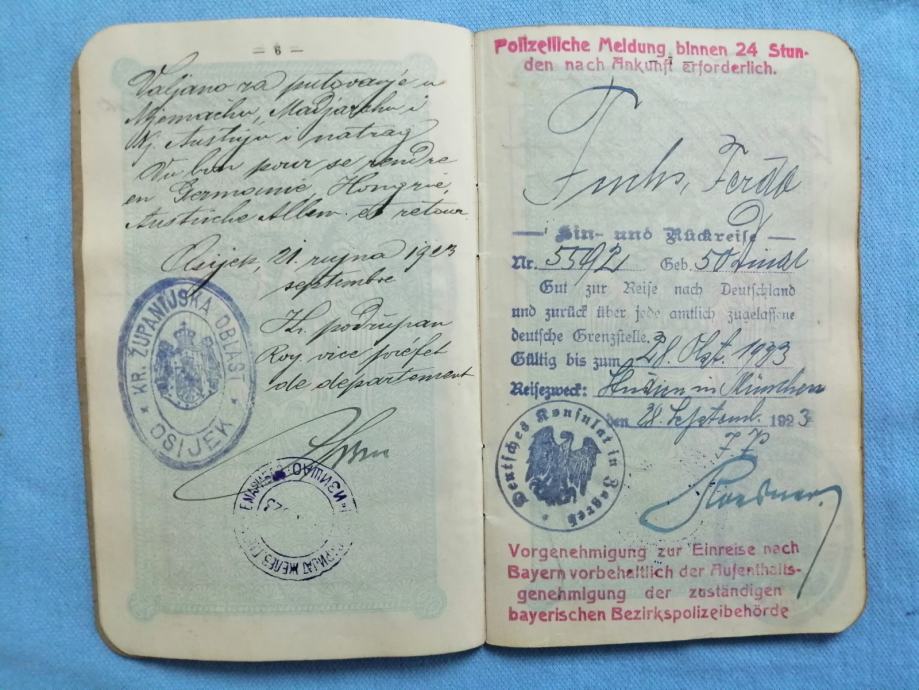 — 6 —
Valjano za putovanje u
Njemačku, Madjarsku i
Nj. Austriju i natrag
Vu bon pour se rendre
en Germanie, Hongrie,
Autriche Allem. et retour
Osijek, 21. rujna 1923
septembre
Kr. podžupan
Roy. vice préfet
de departement
KR. ŽUPANIJSKA OBLAST
OSIJEK
Polizeiliche Meldung binnen 24 Stun-
den nach Ankunft erforderlich.
Fuchs, Ferdo
Hin- und Rückreise
Nr. 5592 Geb. 50 Dinar
Gut zur Reise nach Deutschland
und zurück über jede amtlich zugelassene
deutsche Grenzstelle.
Gültig bis zum 28. Okt. 1923
Reisezweck: Studien in München
den 28. Septemb. 1923
Deutsches Konsulat in Zagreb
Vorgenehmigung zur Einreise nach
Bayern vorbehaltlich der Aufenthalts-
genehmigung der zuständigen
bayerischen Bezirkspolizeibehörde